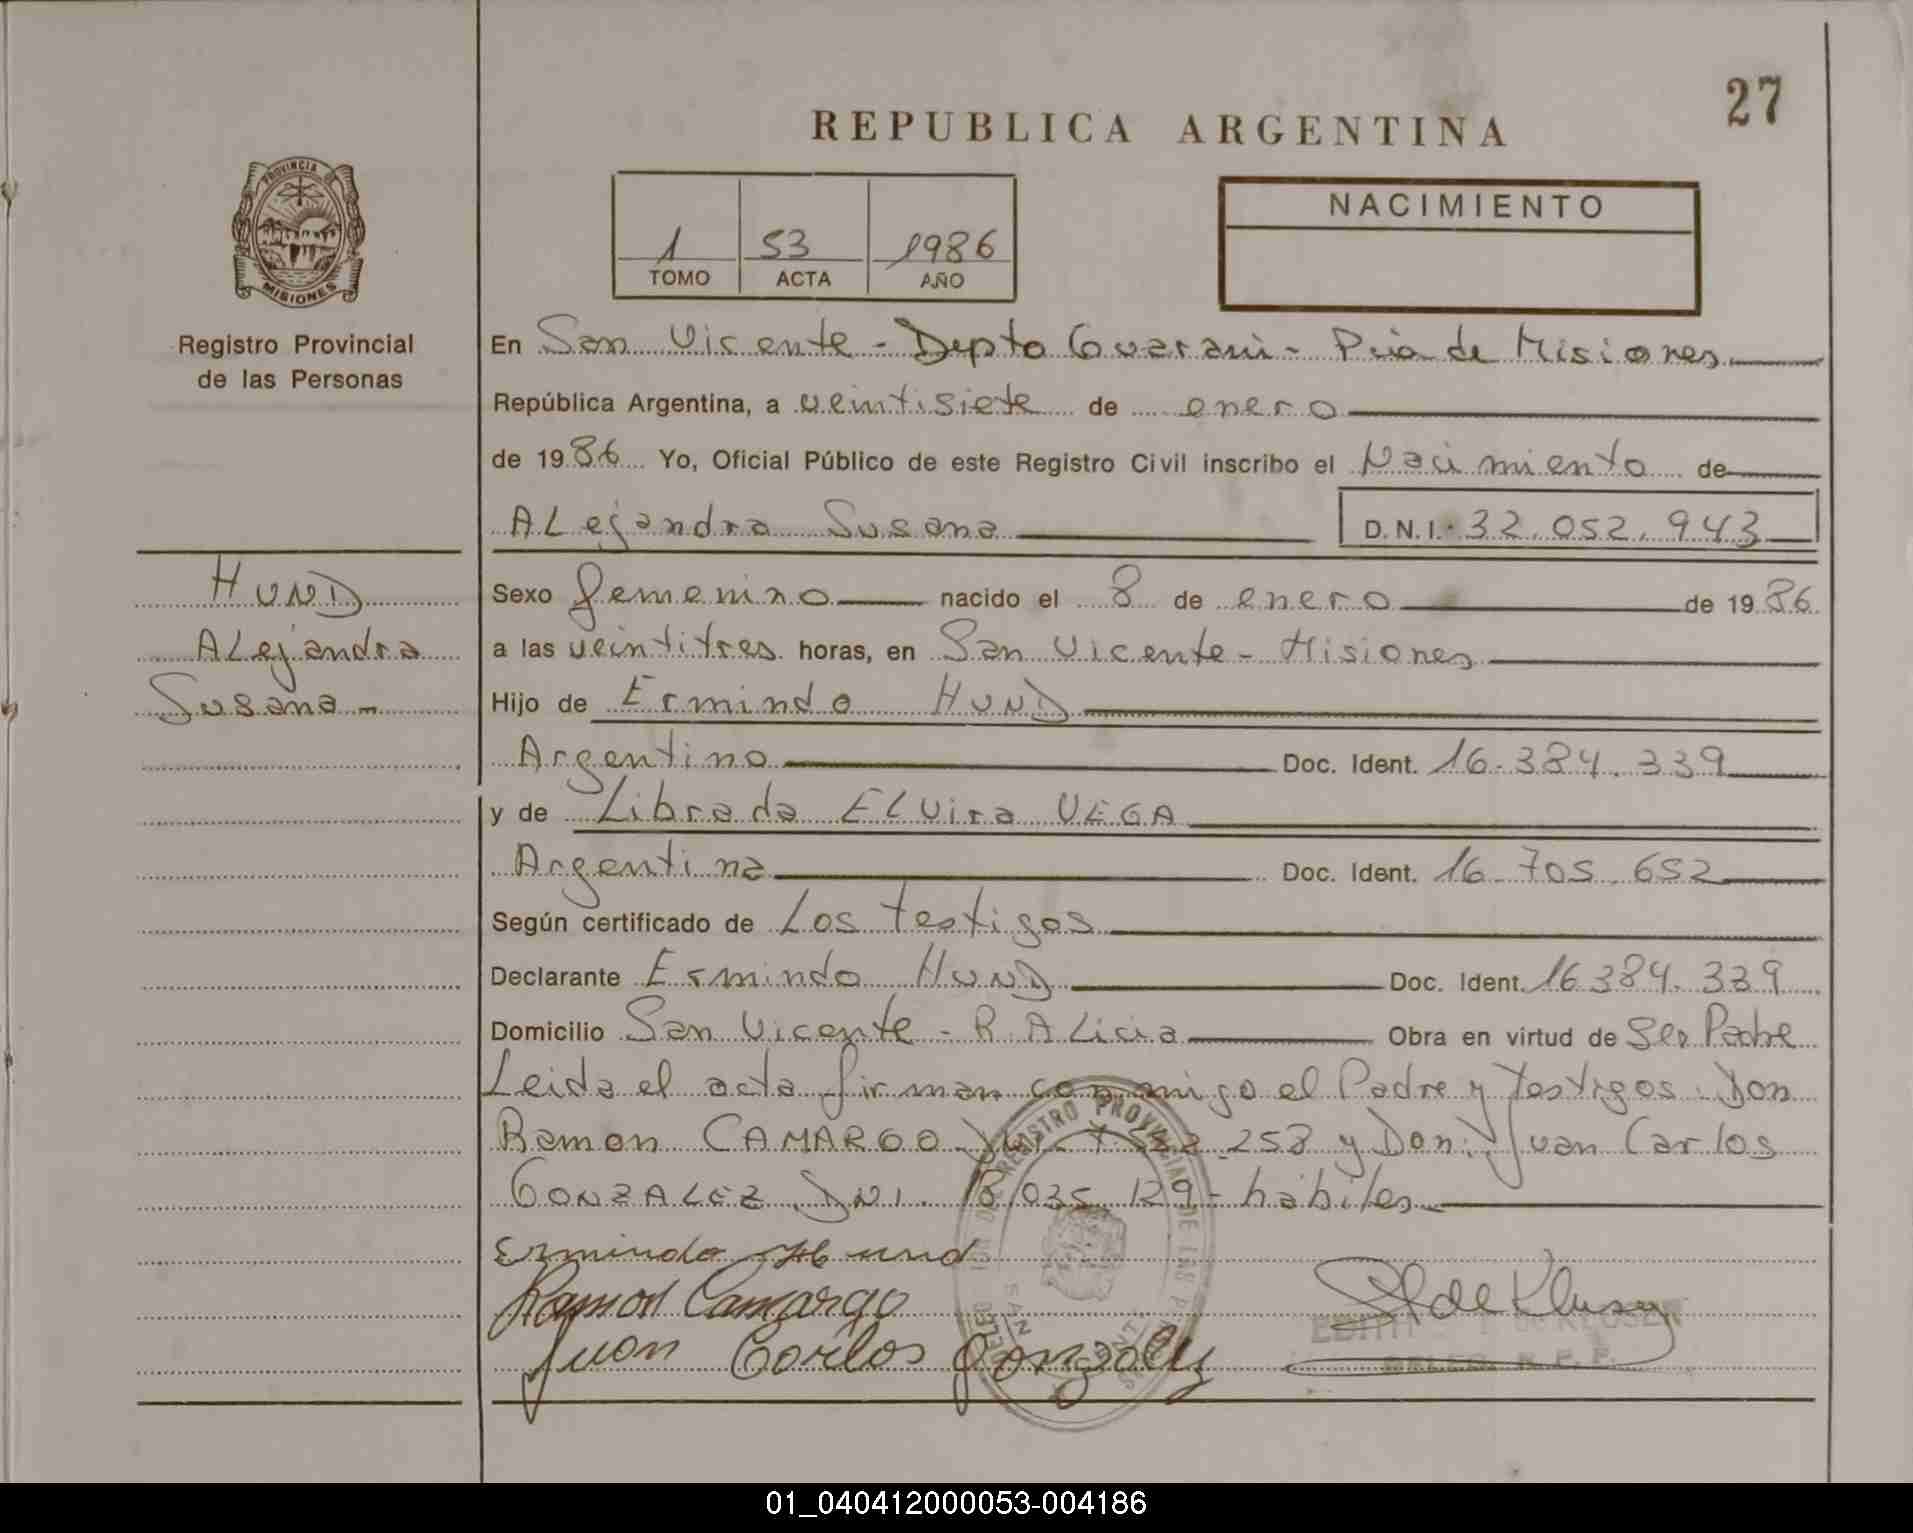 27
REPUBLICA ARGENTINA
PROVINCIA DE
MISIONES
Registro Provincial
de las Personas
1 53 1986
TOMO ACTA AÑO
NACIMIENTO
En San Vicente - Depto Guarani - Pcia de Misiones
República Argentina, a veintisiete de enero
de 1986 Yo, Oficial Público de este Registro Civil inscribo el Nacimiento de
ALejandra Susana D.N.I. 32.052.943
HUND
ALejandra
Susana -
Sexo femenino nacido el 8 de enero de 1986
a las veintitres horas, en San Vicente - Misiones
Hijo de Ermindo HUND
Argentino Doc. Ident. 16.384.339
y de Librada ELVira VEGA
Argentina Doc. Ident. 16.705.652
Según certificado de Los testigos
Declarante Ermindo HUND Doc. Ident. 16.384.339
Domicilio San Vicente - R. ALicia Obra en virtud de Ser Padre
Leida el acta firman conmigo el Padre y testigos: Don
Ramon CAMARGO 258 y Don: Juan Carlos
GONZALEZ DNI. 18.035.129 - hábiles
Ermindo Hund
Ramon Camargo
Juan Carlos Gonzalez
REGISTRO PROVINCIAL DE LAS P
SAN VICENTE
EDITH DE KLUSEN
01_040412000053-004186